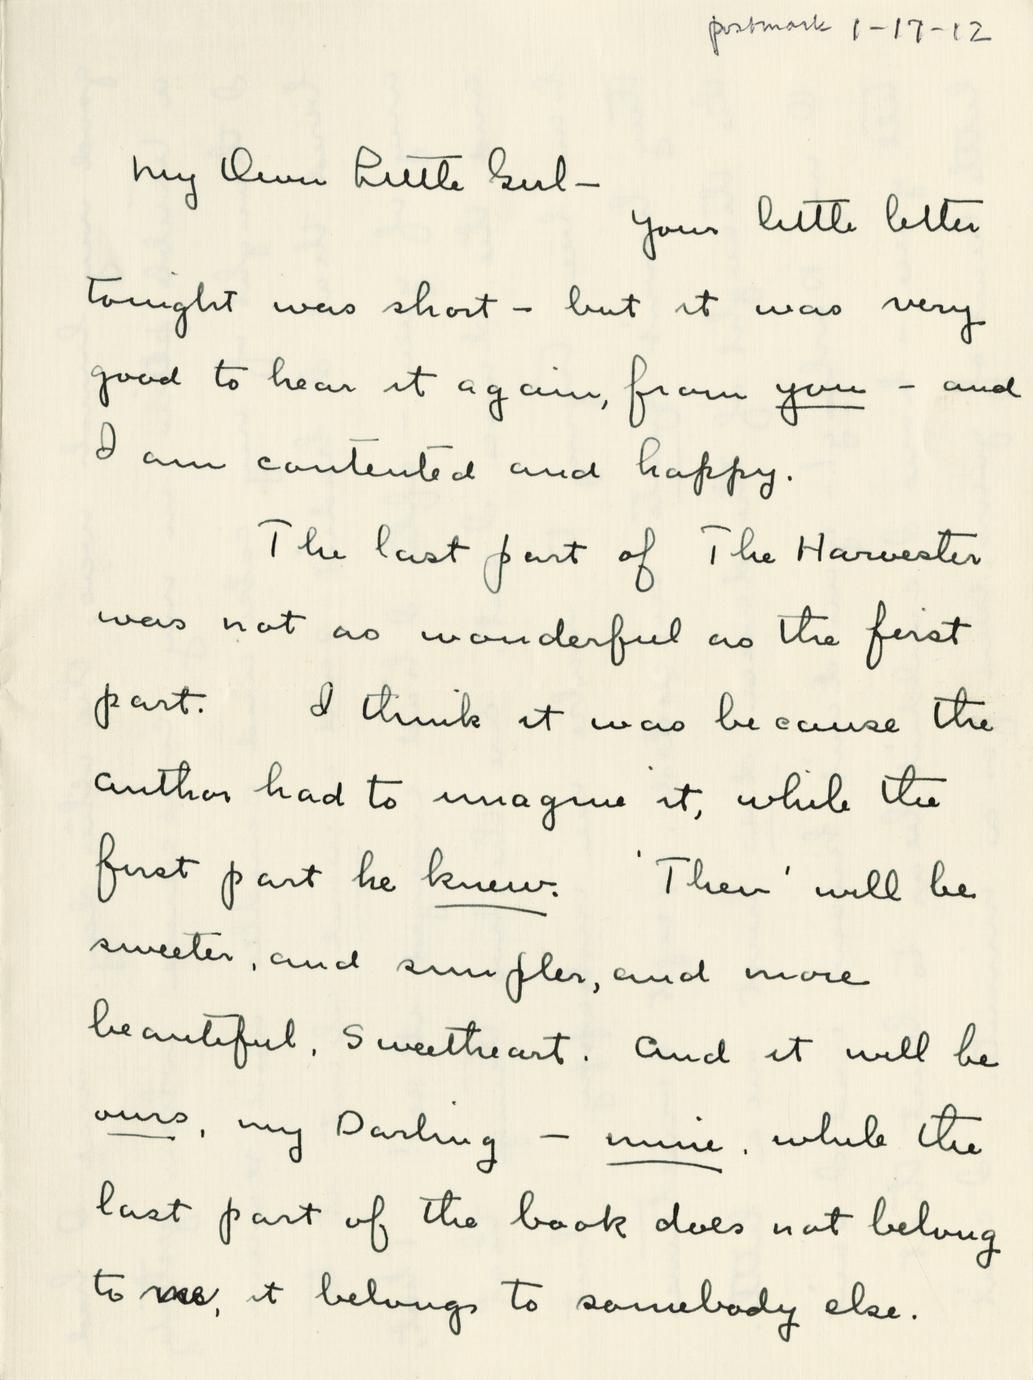 postmark 1-17-12
My Own Little Girl-
Your little letter
tonight was short - but it was very
good to hear it again, from you - and
I am contented and happy.
The last part of The Harvester
was not as wonderful as the first
part. I think it was because the
author had to imagine it, while the
first part he knew. 'Then' will be
sweeter, and simpler, and more
beautiful, Sweetheart. And it will be
ours, my Darling - mine, while the
last part of the book does not belong
to me, it belongs to somebody else.